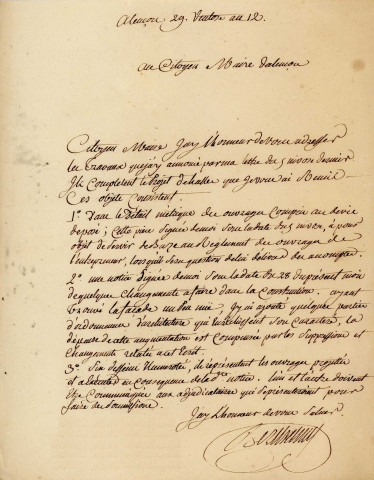 Alençon 29. Ventose an 12.
au Citoyen Maire d'alençon
Citoyen Maire Jay l'honneur de vous adresser
les travaux que j'ay annoncé par ma lettre du 5 nivose dernier
Ils completent le Projet de halle que je vous ai Remis
Ces objets Consistent.
1° Dans le détail métrique des ouvrages Compris au devis
déposé; Cette pièce Signée de moi Sous la date du 5 nivose, a pour
objet de Servir de Baze au Reglement des ouvrages de
l'entrepreneur, lorsqu'il sera question de lui délivrer des acomptes.
2° une notice Signée de moi Sous la date du 28 du présent mois
de quelques Changements a faire dans la Construction. ayant
trouvé la façade un peu nüe, J'y ai ajouté quelques parties
d'ordonnance qui Sans Son Caractere, la
dépense de cette augmentation est Compensée par les Suppressions et
Changements relatés a cet Effet.
3° Six dessins Numerotés, ils représentent les ouvrages projettés
et a exécuter en Consequence de la dte notice. l'un et l'autre doivent
Etre Communiqués aux adjudicataires qui se présenteront pour
faire des Soumissions.
Jay l'honneur de vous Saluer.